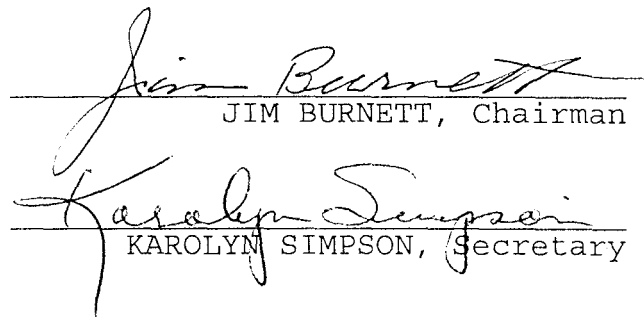 Jim Burnett
JIM BURNETT, Chairman
Karolyn Simpson
KAROLYN SIMPSON, Secretary